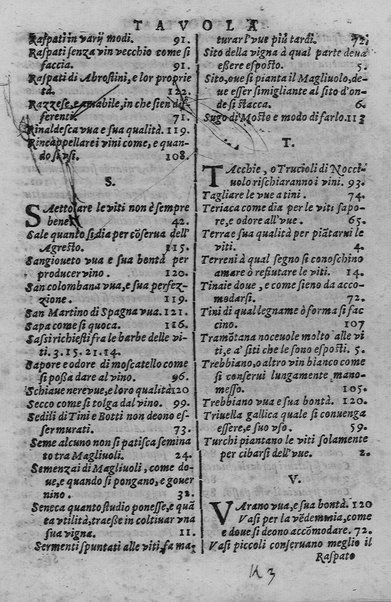 TAVOLA
Raspati in varij modi. 91.
Raspati senza vin vecchio come si
faccia. 91.
Raspati di Abrostini, e lor proprie
tà. 122.
Razzese, e amabile, in che sien dif
ferenti 71.
Rinaldesca vua e sua qualità. 119.
Rincappellare i vini come, e quan-
do si vsi. 108.
S.
SAettolare le viti non è sempre
bene. 42.
Sale quanto si dia per cōserua dell'
Agresto. 115.
Sangioueto vua e sua bontà per
producer vino. 120.
San colombana vua, e sua perfez-
zione. 119.
San Martino di Spagna vua. 121.
Sapa come si quoca. 116.
Sassi richiesti fra le barbe delle vi-
ti. 3. 15. 21. 14.
Sapore e odore di moscatello come
si possa dare al vino. 96.
Schiaue nere vue, e loro qualità 120
Secco come si tolga dal vino. 99.
Sedili di Tini e Botti non deono es-
ser murati. 73.
Seme alcuno non si patisca semina
to tra Magliuoli. 24.
Semenzai di Magliuoli, come do-
ue, e quando si pongano, e gouer
nino. 32.
Seneca quanto studio ponesse, e quā
ta vtilità, traesse in coltiuar vna
sua vigna. 11.
Sermenti spuntati alle viti, fa ma-
turar l'vue più tardi. 52.
Sito della vigna à qual parte deua
essere esposto. 5.
Sito, oue si pianta il Magliuolo, de-
ue esser simigliante al sito d'on-
de si stacca. 6.
Sugo di Mosto e modo di farlo. 113
T.
TAcchie, o Trucioli di Nocci-
uolo rischiarano i vini. 93.
Tagliare le vue a tini. 74.
Teriaca come dia per le viti sapo-
re, e odore all'vue. 65.
Terra e sua qualità per piātarui le
viti. 4.
Terreni à qual segno si conoschino
amare ò rifiutare le viti. 14.
Tinaie doue, e come sieno da acco-
modarsi. 72.
Tini di qual legname ò forma si fac
cino. 107
Tramōtana noceuole molto alle vi
ti, e a' siti che le sono esposti. 5.
Trebbiano, o altro vin bianco come
si conserui lungamente mano-
messo. 105.
Trebbiano vua e sua bontà. 120.
Triuella gallica quale si conuenga
essere, e suo vso. 59.
Turchi piantano le viti solamente
per cibarsi dell'vue. 2.
V.
VArano vua, e sua bontà. 120
Vasi per la vēdemmia, come
e doue si deono accōmodare. 72.
Vasi piccoli conseruano meglio il
Raspato
K 3